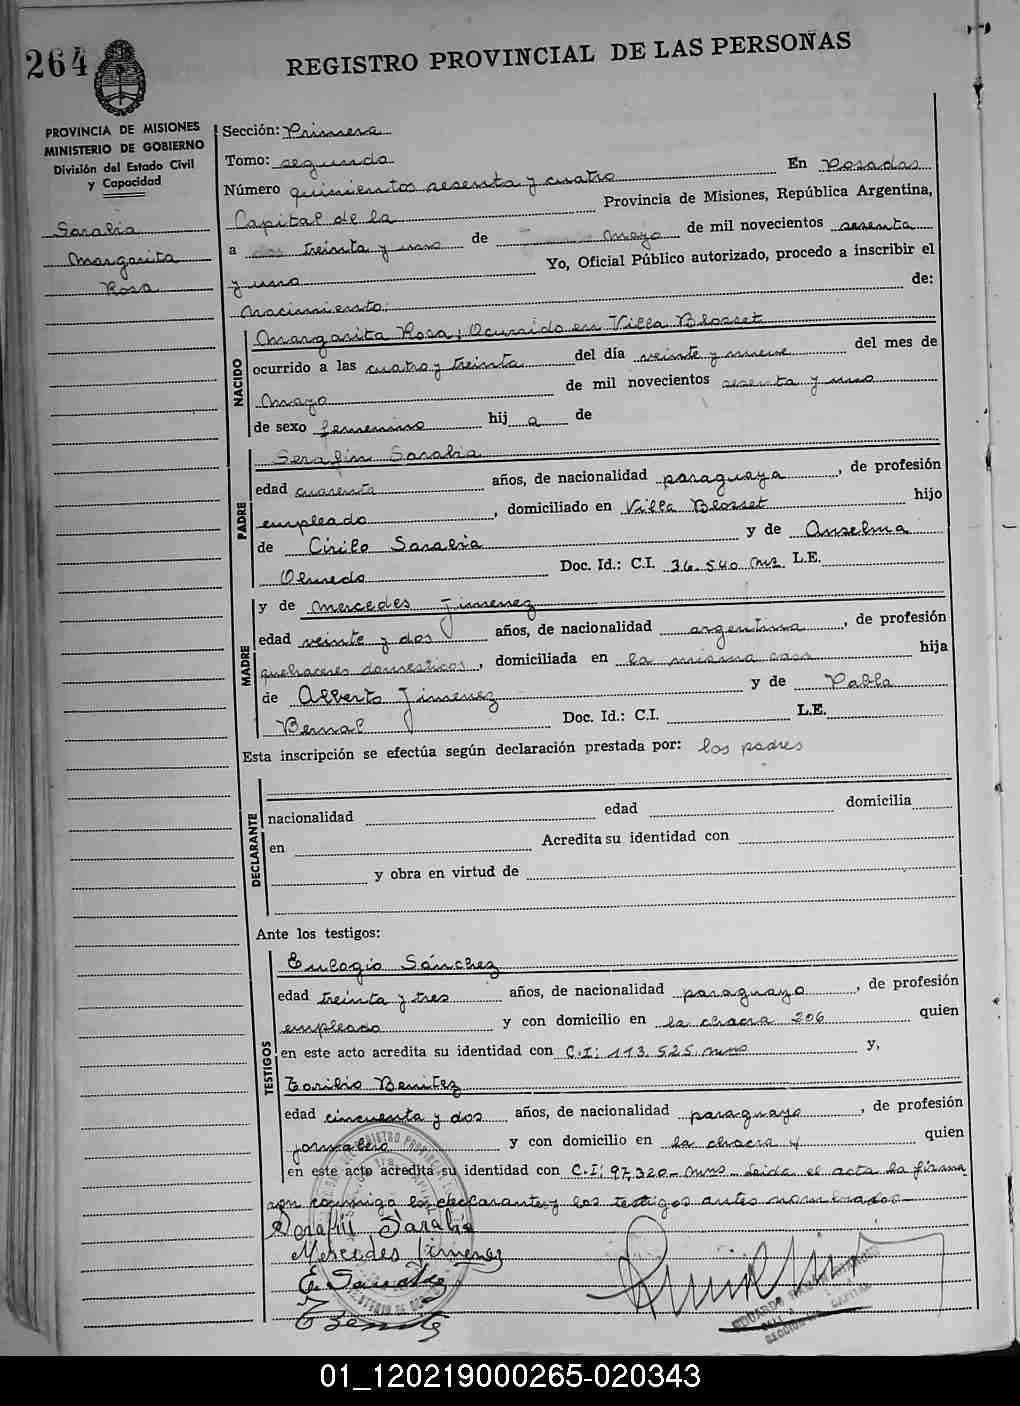 264
REGISTRO PROVINCIAL DE LAS PERSONAS
PROVINCIA DE MISIONES
MINISTERIO DE GOBIERNO
División del Estado Civil
y Capacidad
Sarabia
Margarita
Rosa
Sección: Primera
Tomo: segundo
Número quinientos sesenta y cuatro En Posadas
Capital de la Provincia de Misiones, República Argentina,
a treinta y uno de Mayo de mil novecientos sesenta
y uno Yo, Oficial Público autorizado, procedo a inscribir el
nacimiento: de:
NACIDO
Margarita Rosa; Ocurrido en Villa Blosset
ocurrido a las cuatro y treinta del día veinte y nueve del mes de
Mayo de mil novecientos sesenta y uno
de sexo femenino hij a de
PADRE
Serafín Sarabia
edad cuarenta años, de nacionalidad paraguaya, de profesión
empleado, domiciliado en Villa Blosset hijo
de Cirilo Sarabia y de Anselma
Olmedo Doc. Id.: C.I. 36.540 Mz L.E.
MADRE
y de Mercedes Jimenez
edad veinte y dos años, de nacionalidad argentina, de profesión
quehaceres domesticos, domiciliada en la misma casa hija
de Alberto Jimenez y de Pabla
Bernal Doc. Id.: C.I. L.E.
Esta inscripción se efectúa según declaración prestada por: los padres
DECLARANTE
nacionalidad edad domicilia
en Acredita su identidad con
y obra en virtud de
Ante los testigos:
TESTIGOS
Eulogio Sánchez
edad treinta y tres años, de nacionalidad paraguayo, de profesión
empleado y con domicilio en la chacra 206 quien
en este acto acredita su identidad con C.I: 113.525 Mnes y,
Torilio Benitez
edad cincuenta y dos años, de nacionalidad paraguayo, de profesión
jornalero y con domicilio en la chacra 4 quien
en este acto acredita su identidad con C.I: 97,320-Mnes Leida el acta la firman
con conmigo los declarantes y los testigos antes nombrados
Serafin Sarabia
Mercedes Jimenez
E Sanchez
T Benitez
EDUARDO
SECCION CAPITAL
01_120219000265-020343